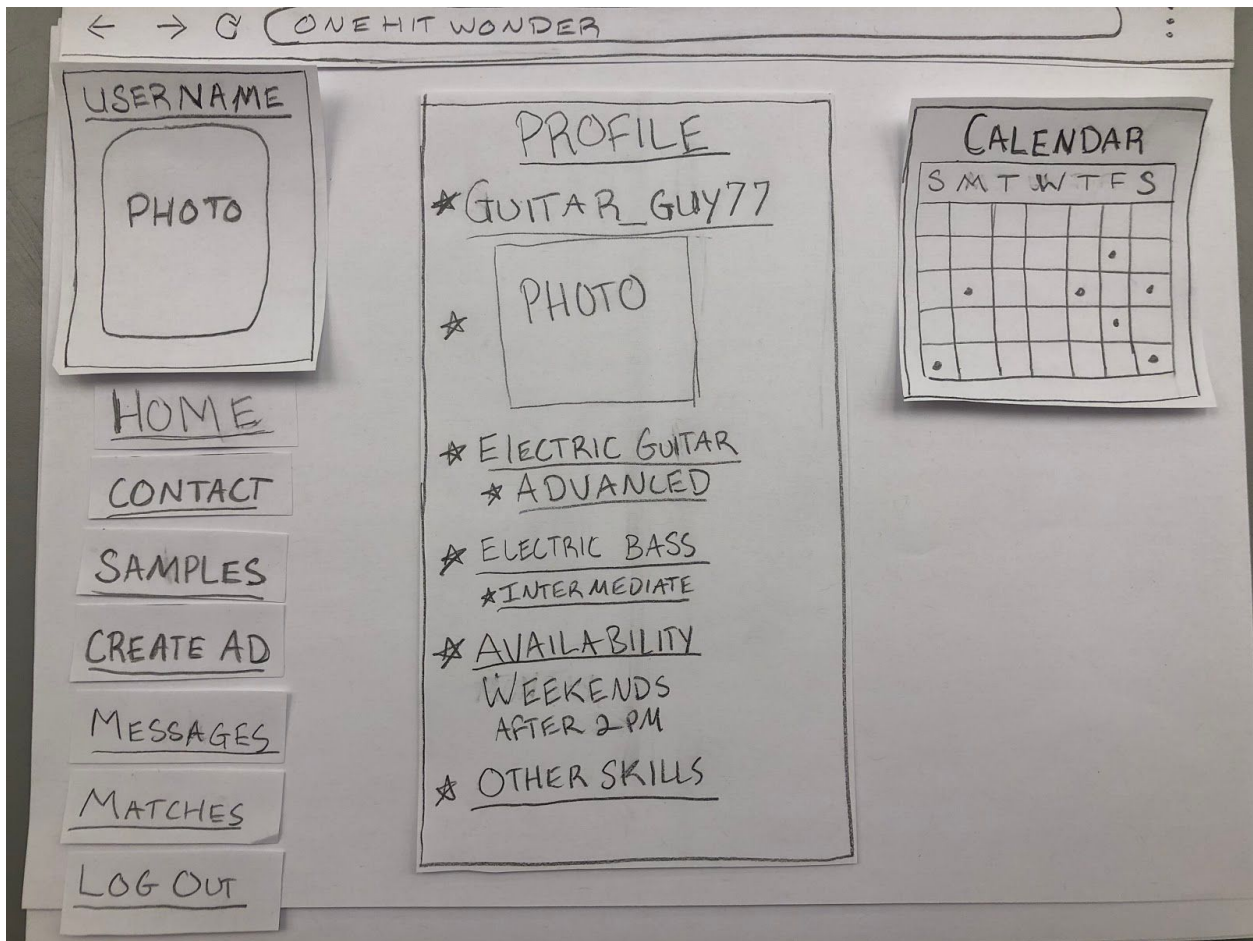 ONE HIT WONDER
USERNAME
PHOTO
HOME
CONTACT
SAMPLES
CREATE AD
MESSAGES
MATCHES
LOG OUT
PROFILE
GUITAR_GUY77
PHOTO
ELECTRIC GUITAR
ADVANCED
ELECTRIC BASS
INTERMEDIATE
AVAILABILITY
WEEKENDS
AFTER 2 PM
OTHER SKILLS
CALENDAR
S M T W T F S